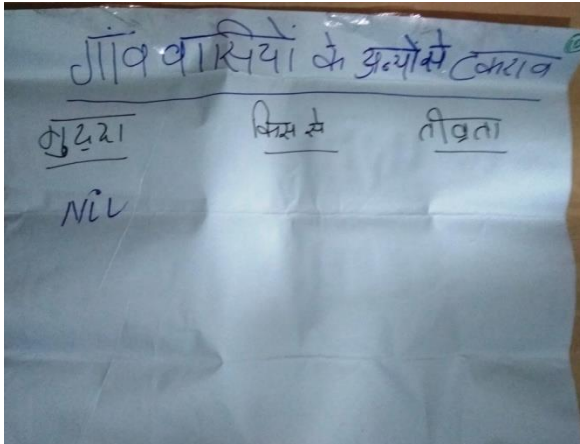 गांव वासियों के अन्यों से टकराव
मुद्दा किस से तीव्रता
NIL